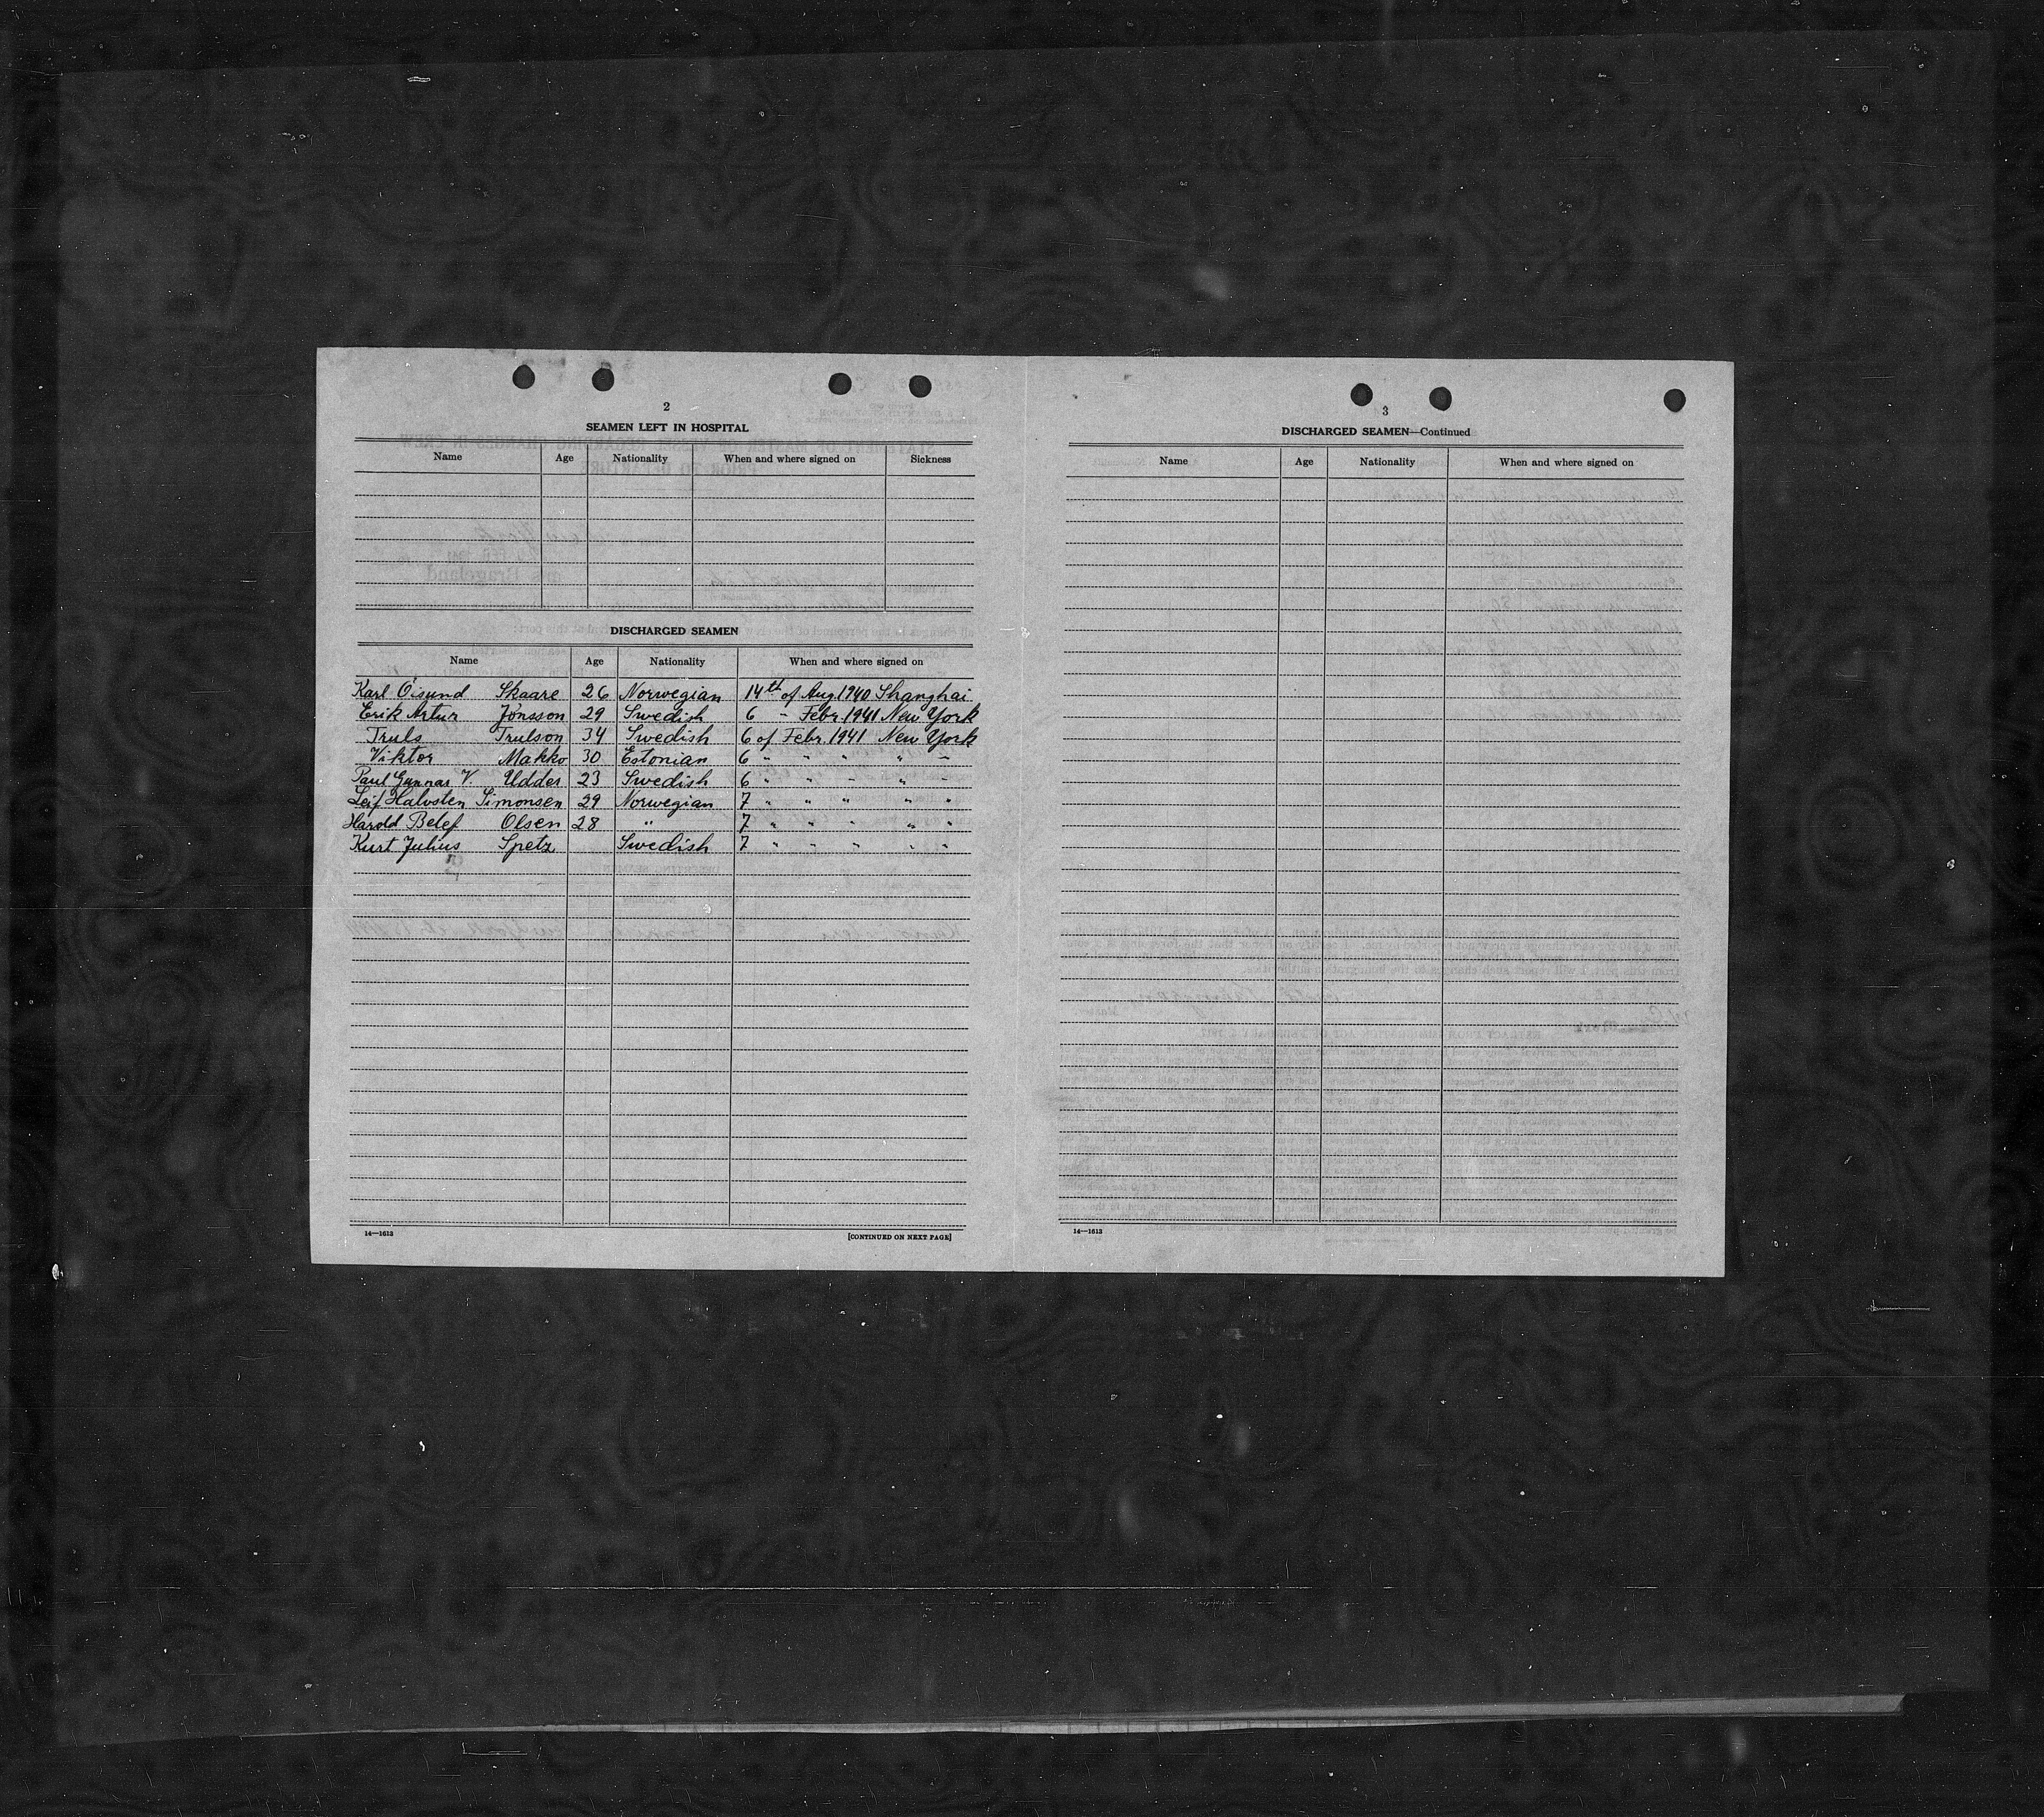 2
SEAMEN LEFT IN HOSPITAL
Name Age Nationality When and where signed on Sickness
DISCHARGED SEAMEN
Name Age Nationality When and where signed on
Karl Öisund Skaare 26 Norwegian 14th of Aug. 1940 Shanghai
Erik Artur Jönsson 29 Swedish 6 - Febr. 1941 New York
Truls Trulson 34 Swedish 6 of Febr. 1941 New York
Viktor Makko 30 Estonian 6 " " " " -
Paul Gunnar V. Udder 23 Swedish 6 " " - " -
Leif Halvsten Simonsen 29 Norwegian 7 " " " " "
Harold Belef Olsen 28 " 7 " " " " "
Kurt Julius Spetz Swedish 7 " " " " "
14—1613
[CONTINUED ON NEXT PAGE]
3
DISCHARGED SEAMEN—Continued
Name Age Nationality When and where signed on
14—1613